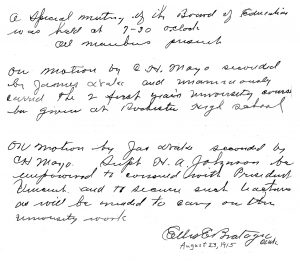 A Special meeting of the Board of Education
was held at 7-30 oclock
All members present
On motion by C H. Mayo seconded
by James and unanimously
carried the 2 first years University course
be given at Rochester High School
On motion by Jas seconded by
CH Mayo Supt H. A. Johnson be
empowered to consult with President
Vincent and to secure such teachers
as will be needed to carry on the
University work
August 23, 1915 Clerk